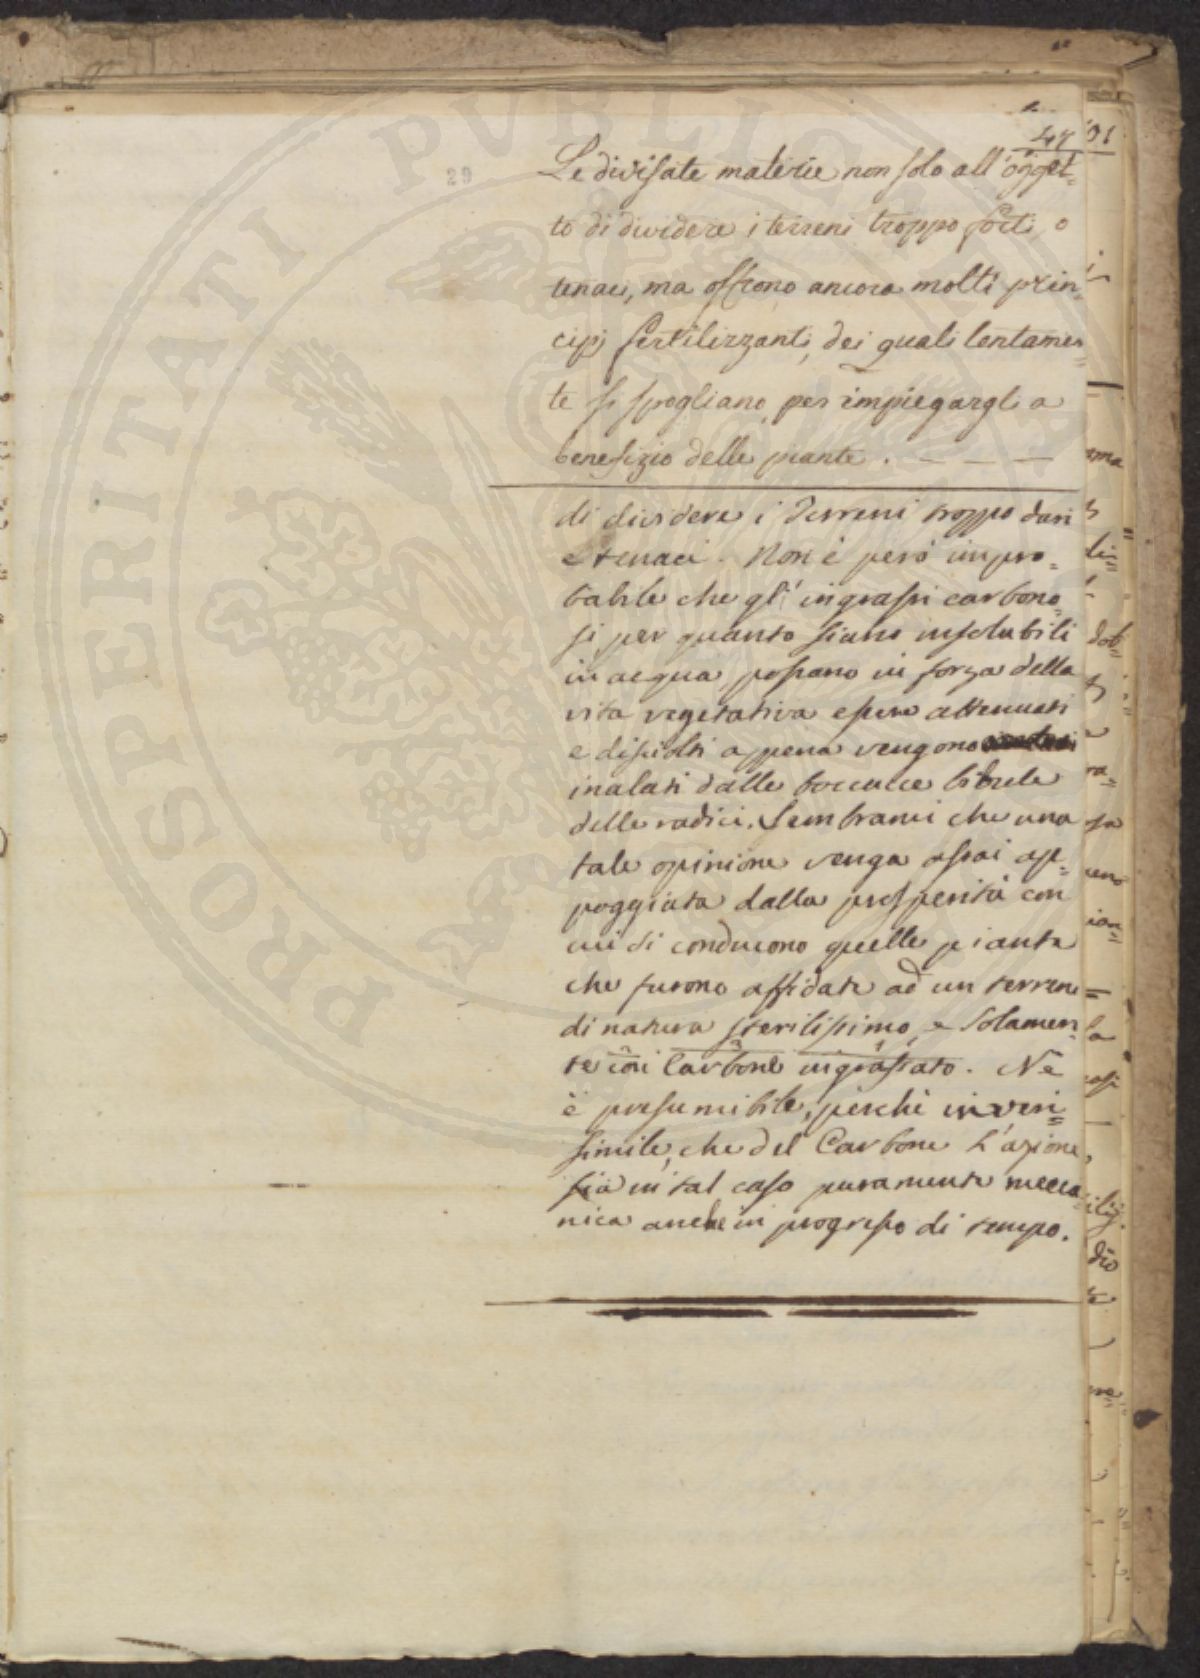 47
29
Le divisate materie non solo all'ogget=
to di dividere i terreni troppo forti, o
tenaci, ma offrono ancora molti prin=
cipj fertilizzanti, dei quali lentamen=
te si spogliano per impiegargli a
benefizio delle piante. — — — —
di dividere i terreni troppo duri
e tenaci. Non è però impro=
babile che gl'ingrassi carbono=
si per quanto siano insolubili
in acqua, possano in forza della
vita vegetativa essere attenuati
e disciolti appena vengono
inalati dalle boccucce bibule
delle radici. Sembrami che una
tale opinione venga assai ap=
poggiata dalla prosperità con
cui si conducono quelle piante
che furono affidate ad un terreno
di natura sterilissimo, e solamen=
te con Carbone ingrassato. Nè
è presumibile, perchè inveri=
simile, che del Carbone l'azione
sia in tal caso puramente mecca=
nica anche in progresso di tempo.
PROSPERITATI PUBLIC